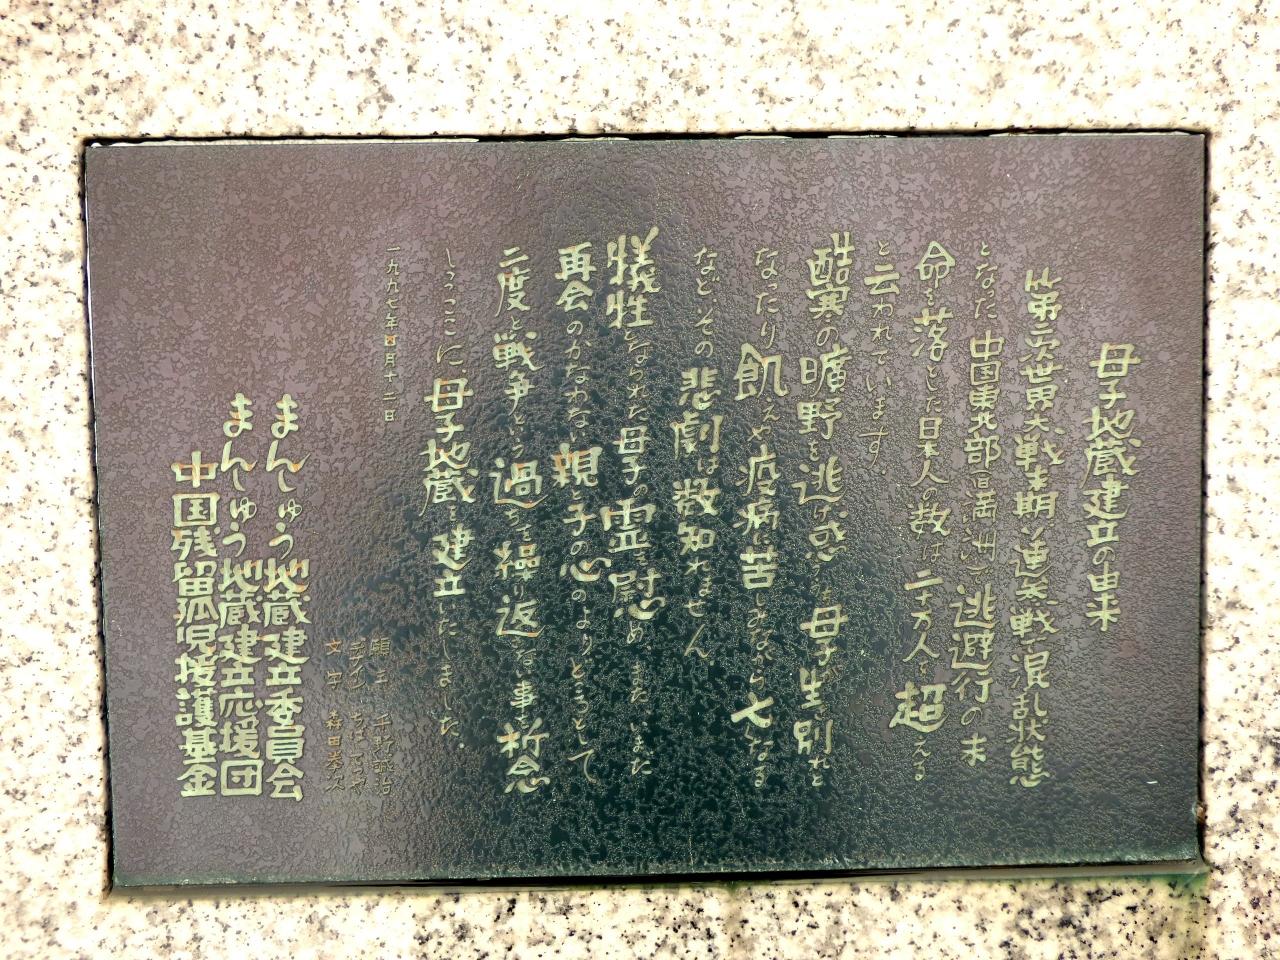 母子地蔵建立の由来
第二次世界大戦末期、連策戦の混乱状態
となった中国東北部(旧満洲)で逃避行の末
命を落とした日本人の数は二十万人を超える
と云われています。
酷寒の曠野を逃げ惑ううち母子が生き別れと
なったり飢えや疫病に苦しみながら亡くなる
など、その悲劇は数知れません。
犠牲となられた母子の霊を慰め、また、いまだ
再会のかなわない親と子の心のよりどころとして
二度と戦争という過ちを繰り返さない事を祈念
しつつここに、母子地蔵を建立いたしました。
一九九七年四月十二日
願主 千野誠治
デザイン ちばてつや
文字 森田拳次
まんしゅう地蔵建立委員会
まんしゅう地蔵建立応援団
中国残留孤児援護基金